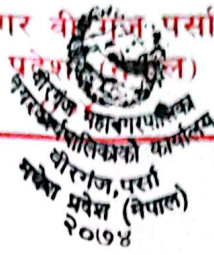 गर वीरगंज, पर्सा
प्रदेश (नेपाल)
वीरगंज महानगरपालिका
नगर कार्यपालिकाको कार्यालय
वीरगंज, पर्सा
मधेश प्रदेश (नेपाल)
२०७४